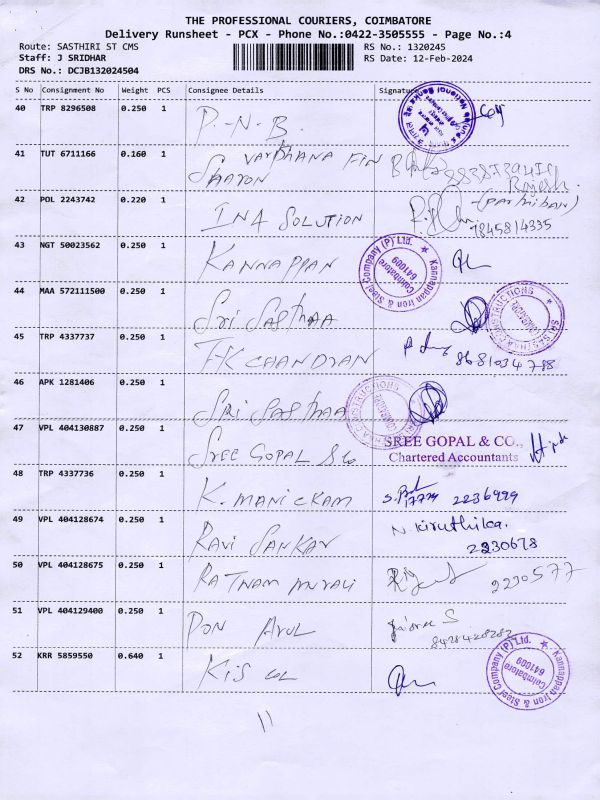 THE PROFESSIONAL COURIERS, COIMBATORE
Delivery Runsheet - PCX - Phone No.:0422-3505555 - Page No.:4
Route: SASTHIRI ST CMS RS No.: 1320245
Staff: J SRIDHAR RS Date: 12-Feb-2024
DRS No.: DCJB132024504
S No Consignment No Weight PCS Consignee Details Signature
40 TRP 8296508 0.250 1 P.N.B.
41 TUT 6711166 0.160 1 VARDHANA FIN
42 POL 2243742 0.220 1 INA SOLUTION (Parthiban)
9845814335
43 NGT 50023562 0.250 1 KANNAPPAN
Kannappan Iron & Steel Company (P) Ltd. Coimbatore 641009
44 MAA 572111500 0.250 1 Sri Sasthaa
SRI SASTHAA CONSTRUCTIONS
45 TRP 4337737 0.250 1 T.K CHANDRAN
8681034788
46 APK 1281406 0.250 1 Sri Sasthaa
47 VPL 404130887 0.250 1 SREE GOPAL & Co
SREE GOPAL & CO.,
Chartered Accountants
48 TRP 4337736 0.250 1 K. MANICKAM 2236999
49 VPL 404128674 0.250 1 RAVI SANKAR N. Kiruthika.
2230678
50 VPL 404128675 0.250 1 RATNAM MURALI 2230577
51 VPL 404129400 0.250 1 PON ARUL
52 KRR 5859550 0.640 1
Kannappan Iron & Steel Company (P) Ltd. Coimbatore 641009